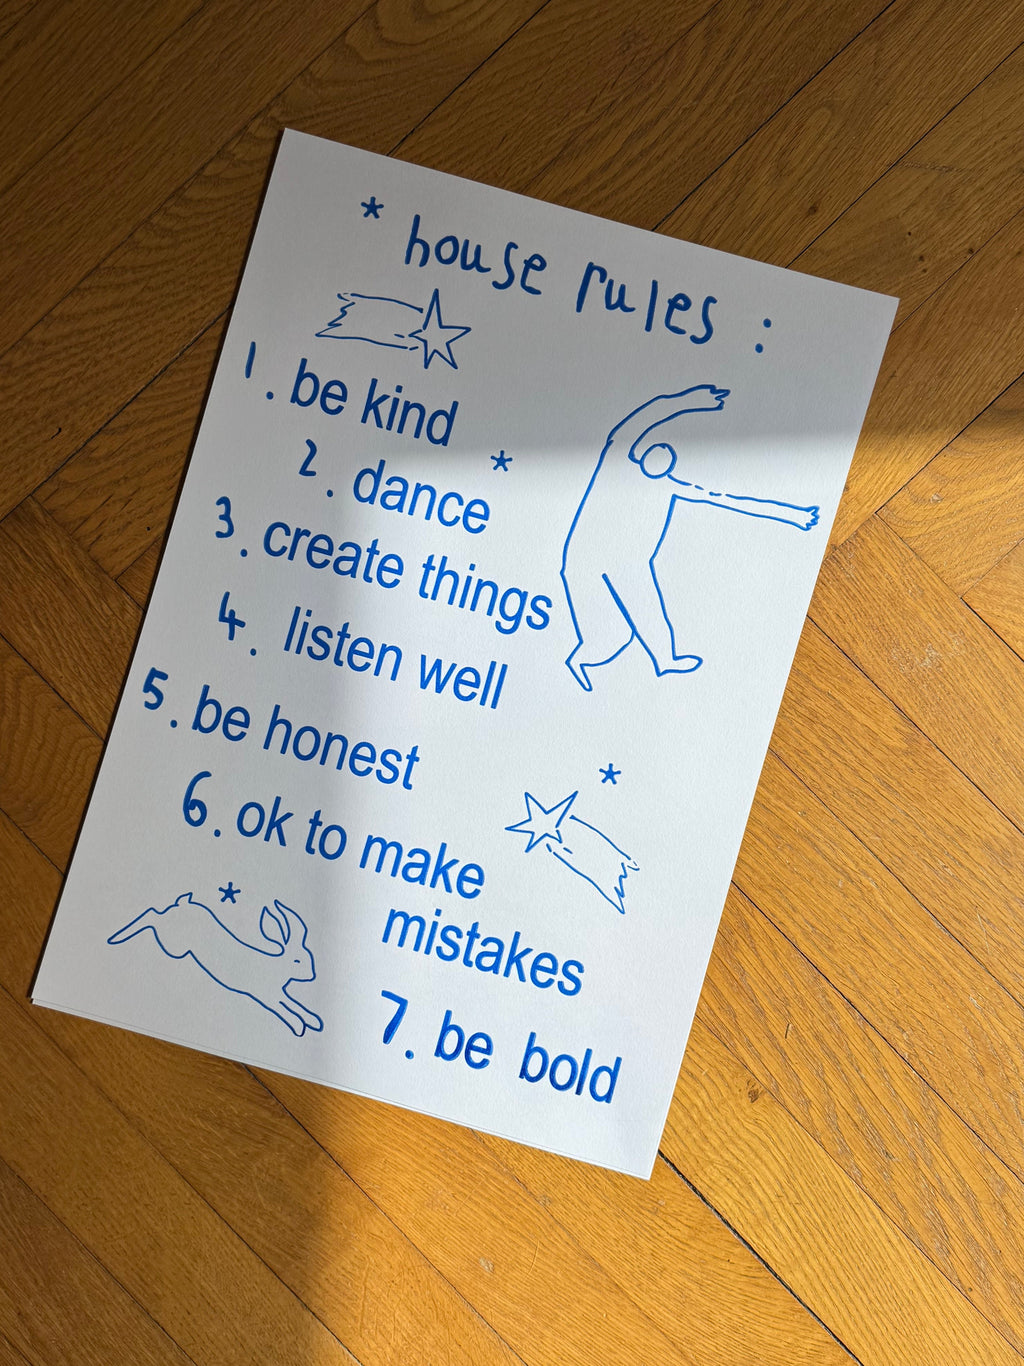 * house rules :
1. be kind
2. dance *
3. create things
4. listen well
5. be honest
6. ok to make
mistakes
7. be bold